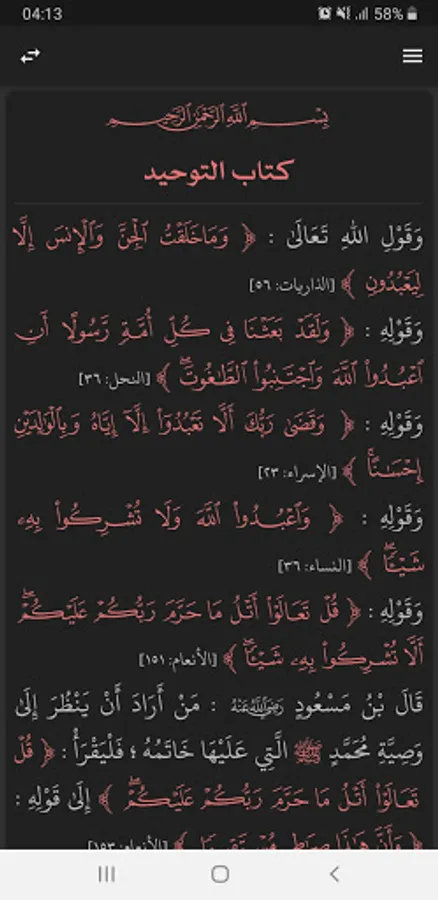 04:13 58%
بِسْمِ اللَّهِ الرَّحْمَٰنِ الرَّحِيمِ
كتاب التوحيد
وَقَوْلِ اللهِ تَعَالَىٰ : ﴿ وَمَا خَلَقْتُ ٱلْجِنَّ وَٱلْإِنسَ إِلَّا
لِيَعْبُدُونِ ﴾ [الذاريات: ٥٦]
وَقَوْلِهِ : ﴿ وَلَقَدْ بَعَثْنَا فِي كُلِّ أُمَّةٍ رَّسُولًا أَنِ
ٱعْبُدُوا۟ ٱللَّهَ وَٱجْتَنِبُوا۟ ٱلطَّٰغُوتَۖ ﴾ [النحل: ٣٦]
وَقَوْلِهِ : ﴿ وَقَضَىٰ رَبُّكَ أَلَّا تَعْبُدُوٓا۟ إِلَّآ إِيَّاهُ وَبِٱلْوَٰلِدَيْنِ
إِحْسَٰنًاۚ ﴾ [الإسراء: ٢٣]
وَقَوْلِهِ : ﴿ وَٱعْبُدُوا۟ ٱللَّهَ وَلَا تُشْرِكُوا۟ بِهِۦ
شَيْـًٔاۖ ﴾ [النساء: ٣٦]
وَقَوْلِهِ : ﴿ قُلْ تَعَالَوْا۟ أَتْلُ مَا حَرَّمَ رَبُّكُمْ عَلَيْكُمْۖ
أَلَّا تُشْرِكُوا۟ بِهِۦ شَيْـًٔاۖ ﴾ [الأنعام: ١٥١]
قَالَ بْنُ مَسْعُودٍ رَضِيَ اللَّهُ عَنْهُ : مَنْ أَرَادَ أَنْ يَنْظُرَ إِلَىٰ
وَصِيَّةِ مُحَمَّدٍ ﷺ الَّتِي عَلَيْهَا خَاتَمُهُ ؛ فَلْيَقْرَأْ : ﴿ قُلْ
تَعَالَوْا۟ أَتْلُ مَا حَرَّمَ رَبُّكُمْ عَلَيْكُمْۖ ﴾ إِلَىٰ قَوْلِهِ :
﴿ وَأَنَّ هَٰذَا صِرَٰطِى مُسْتَقِيمًا ﴾ [الأنعام: ١٥٣]